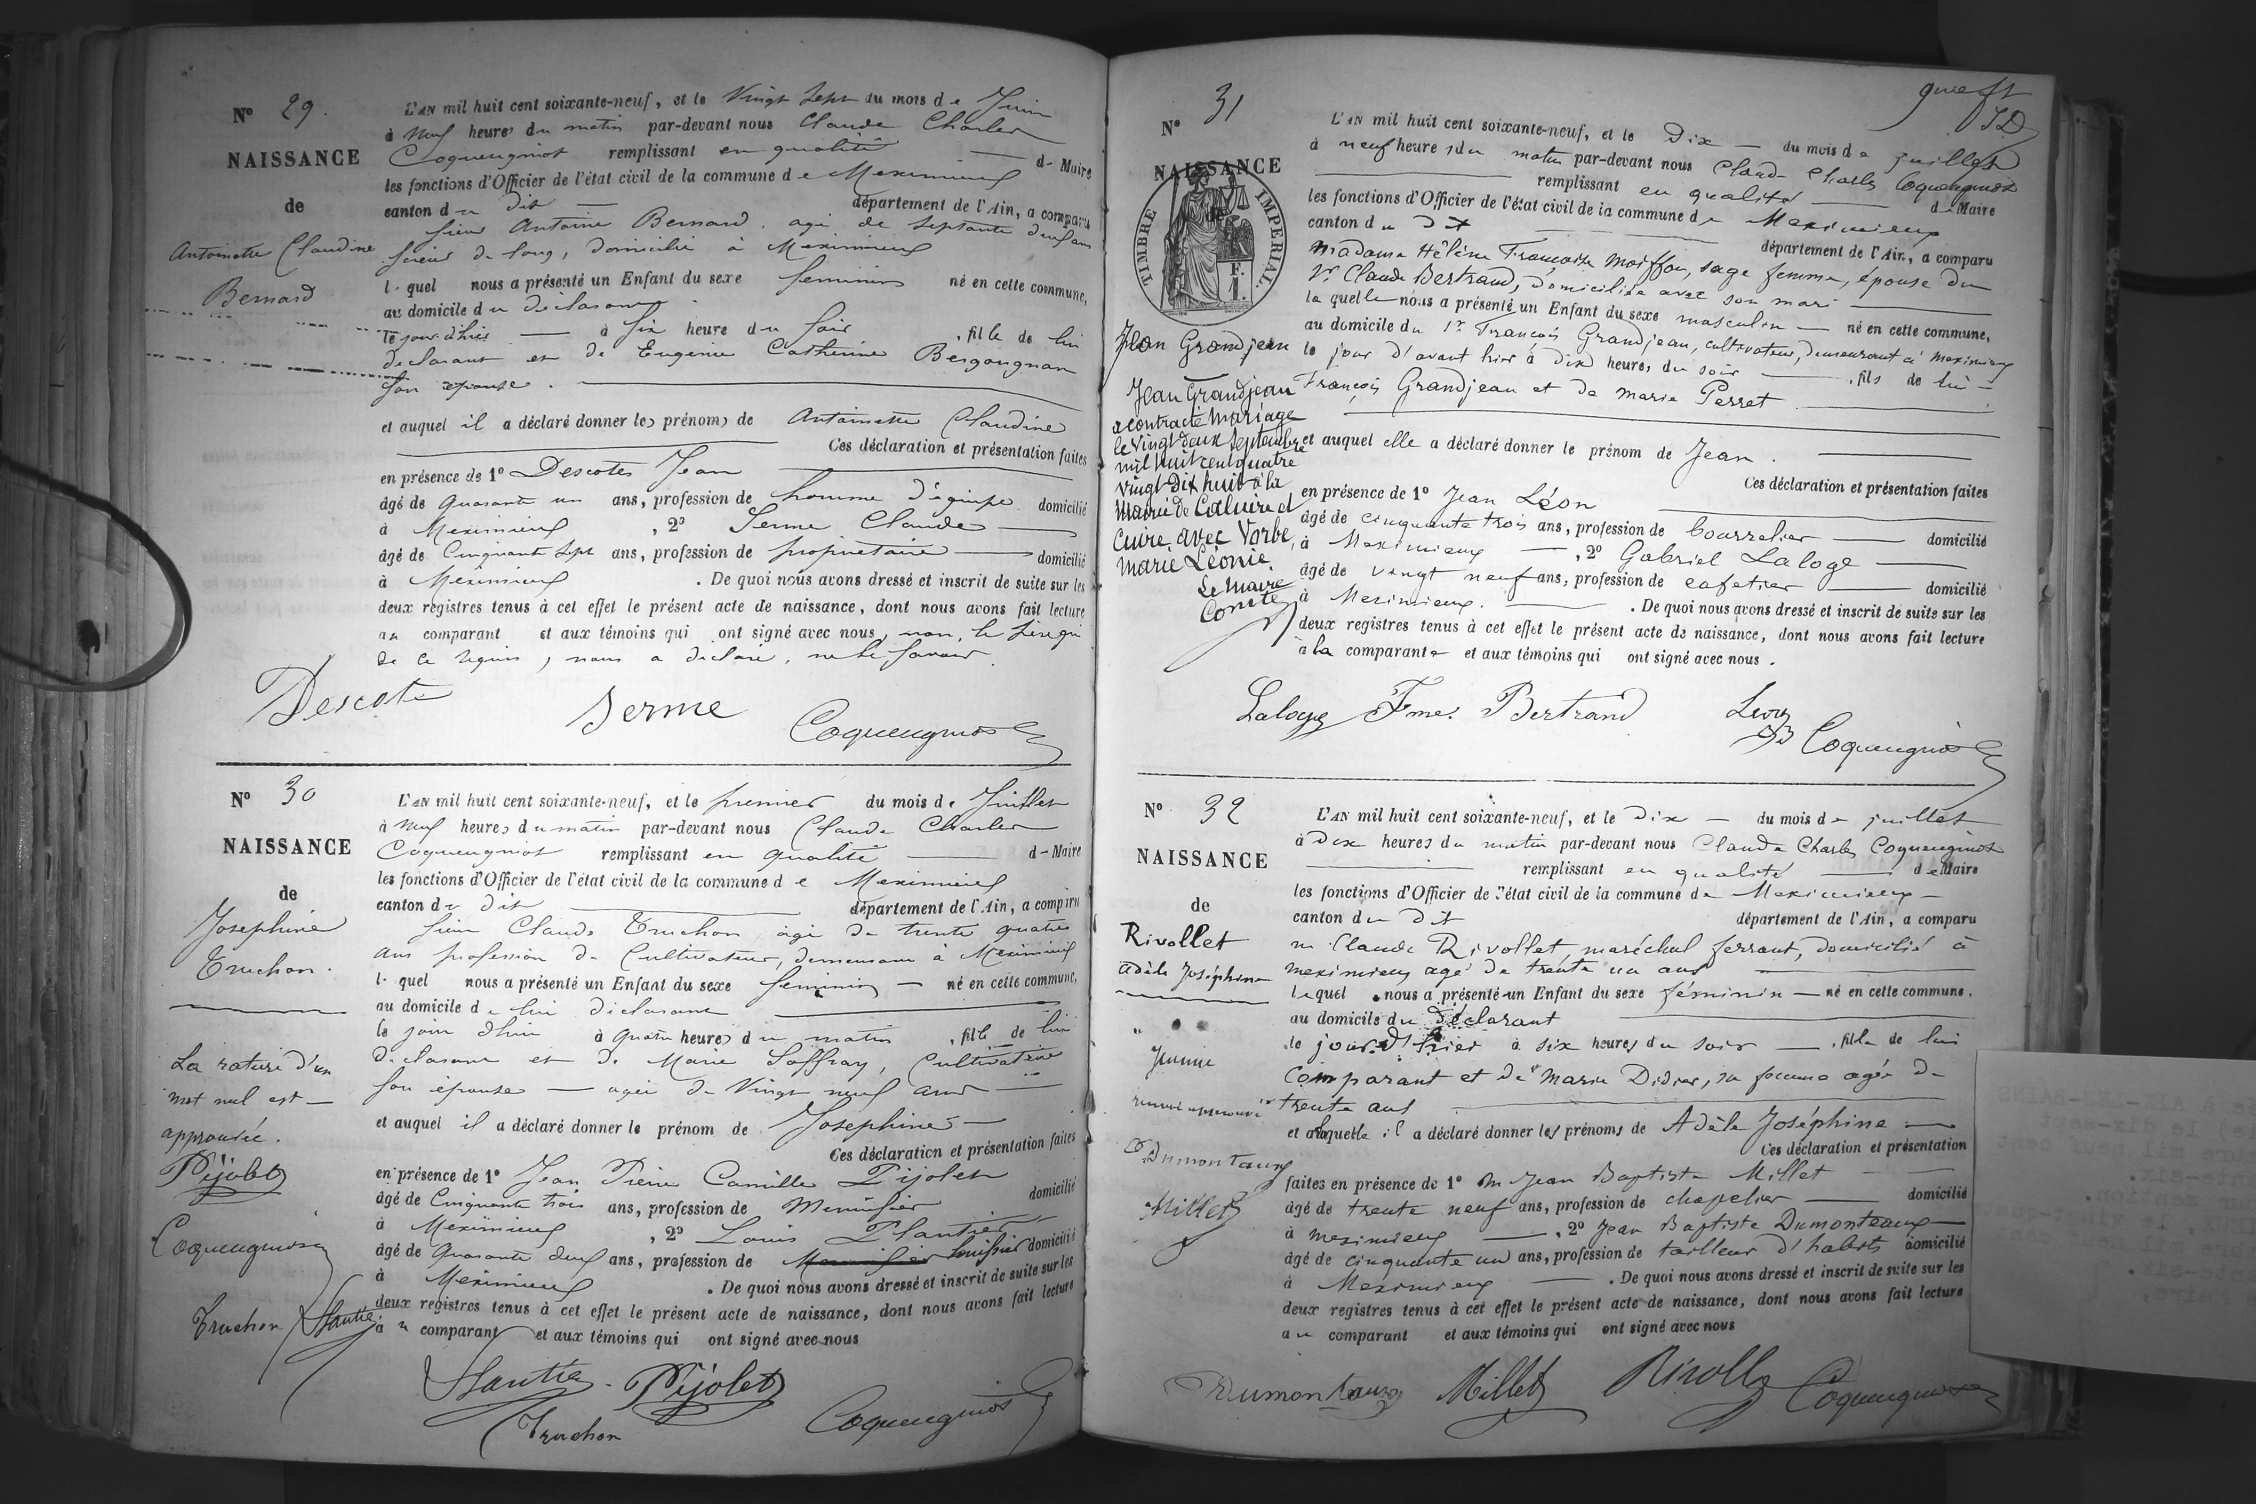 Nº 29.
NAISSANCE
de
Antoinette Claudine
Bernard
L'AN mil huit cent soixante-neuf, et le Vingt Sept du mois de Juin
à Neuf heures du matin par-devant nous Claude Charles
Coquengniot remplissant en qualité de Maire
les fonctions d'Officier de l'état civil de la commune de Meximieux
canton du dit département de l'Ain, a comparu
sieur Antoine Bernard, agé de septante deux ans
scieur de long, domicilié à Meximieux
lequel nous a présenté un Enfant du sexe feminin né en cette commune,
au domicile du déclarant
le jour d'hier à six heure du soir, fille de lui
déclarant et de Eugénie Catherine Bergougnan
son epouse.
et auquel il a déclaré donner les prénoms de Antoinette Claudine
Ces déclaration et présentation faites
en présence de 1º Descotes Jean
âgé de quarante un ans, profession de homme d'équipe domicilié
à Meximieux, 2º Serme Claude
âgé de Cinquante sept ans, profession de propriétaire domicilié
à Meximieux. De quoi nous avons dressé et inscrit de suite sur les
deux registres tenus à cet effet le présent acte de naissance, dont nous avons fait lecture
au comparant et aux témoins qui ont signé avec nous, non, le père qui
de ce requis, nous a déclaré, ne le savoir.
Descote Serme Coquengniot
Nº 30
NAISSANCE
de
Josephine
Truchon.
L'AN mil huit cent soixante-neuf, et le premier du mois de Juillet
à Neuf heures du matin par-devant nous Claude Charles
Coquengniot remplissant en qualité de Maire
les fonctions d'Officier de l'état civil de la commune de Meximieux
canton du dit département de l'Ain, a comparu
sieur Claude Truchon, agé de trente quatre
ans profession de Cultivateur, demeurant à Meximieux
lequel nous a présenté un Enfant du sexe feminin né en cette commune,
au domicile de lui déclarant
le jour d'hui à quatre heures du matin, fille de lui
déclarant et de Marie Soffray, Cultivatrice
son épouse agée de Vingt neuf ans
et auquel il a déclaré donner le prénom de Josephine
Ces déclaration et présentation faites
en présence de 1º Jean Pierre Camille Pijolet
âgé de Cinquante trois ans, profession de Menuisier domicilié
à Meximieux, 2º Louis Plantier
âgé de Quarante deux ans, profession de Menuisier huissier domicilié
à Meximieux. De quoi nous avons dressé et inscrit de suite sur les
deux registres tenus à cet effet le présent acte de naissance, dont nous avons fait lecture
au comparant et aux témoins qui ont signé avec nous
La rature d'un
mot nul est
approuvée.
Pijolet
Coquengniot
Truchon Plantier
Plantier Pijolet
Truchon Coquengniot
SD
Nº 31
NAISSANCE
TIMBRE IMPERIAL.
F.
1.
Jean Grandjean
L'AN mil huit cent soixante-neuf, et le Dix du mois de juillet
à neuf heures du matin par-devant nous Claude Charles Coquengniot
remplissant en qualité de Maire
les fonctions d'Officier de l'état civil de la commune de Meximieux
canton du dit département de l'Ain, a comparu
Madame Hélène Françoise Moiffon, sage femme, épouse du
Sr. Claude Bertrand, domiciliée avec son mari
laquelle nous a présenté un Enfant du sexe masculin né en cette commune,
au domicile du Sr. François Grandjean, cultivateur, demeurant à Meximieux
le jour d'avant hier à dix heures du soir, fils de lui
François Grandjean et de Marie Perret
et auquel elle a déclaré donner le prénom de Jean.
Ces déclaration et présentation faites
en présence de 1º Jean Léon
âgé de cinquante trois ans, profession de bourrelier domicilié
à Meximieux, 2º Gabriel Laloge
âgé de vingt neuf ans, profession de cafetier domicilié
à Meximieux. De quoi nous avons dressé et inscrit de suite sur les
deux registres tenus à cet effet le présent acte de naissance, dont nous avons fait lecture
à la comparante et aux témoins qui ont signé avec nous.
Jean Grandjean
a contracté Mariage
le Vingt deux Septembre
mil huit cent quatre
vingt Dix huit à la
Mairie de Caluire et
Cuire, avec Vorbe,
Marie Léonie.
Le Maire
Laloge Fme. Bertrand Léon Coquengniot
Nº 32
NAISSANCE
de
Rivollet
Adèle Joséphine
L'AN mil huit cent soixante-neuf, et le Dix du mois de juillet
à Dix heures du matin par-devant nous Claude Charles Coquengniot
remplissant en qualité de Maire
les fonctions d'Officier de l'état civil de la commune de Meximieux
canton du dit département de l'Ain, a comparu
m. Claude Rivollet, maréchal ferrant, domicilié à
Meximieux agé de trente un ans
lequel nous a présenté un Enfant du sexe féminin né en cette commune.
au domicile du Déclarant
le jour d'hier à six heures du soir, fille de lui
Comparant et de Marie Didier, sa femme agée de
trente ans
et a laquelle il a déclaré donner les prénoms de Adèle Joséphine
Ces déclaration et présentation
faites en présence de 1º m Jean Baptiste Millet
âgé de trente neuf ans, profession de chapelier domicilié
à Meximieux, 2º Jean Baptiste Dumonteaux
âgé de cinquante un ans, profession de tailleur d'habits domicilié
à Meximieux. De quoi nous avons dressé et inscrit de suite sur les
deux registres tenus à cet effet le présent acte de naissance, dont nous avons fait lecture
au comparant et aux témoins qui ont signé avec nous
renvoi approuvé
Dumontaux
Millet
Dumontaux Millet Rivollet Coquengniot